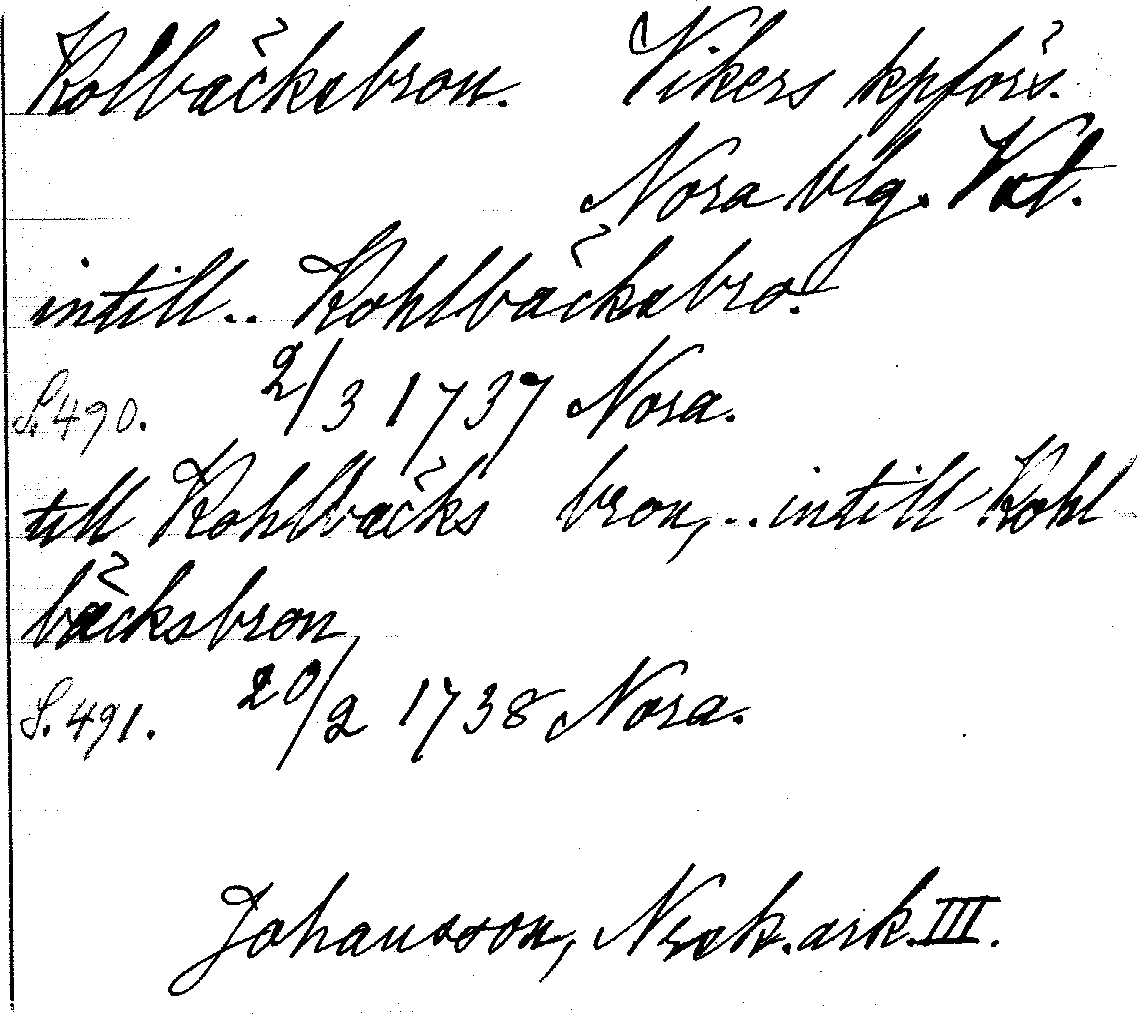 Kolbäcksbron. Vikers kpförs.
Nora blg. Vstl.
intill.. Kohlbäcksbro.
S. 490. 2/3 1737 Nora.
till Kohlbäcks bron, .. intill Kohl
bäcksbron,
S. 491. 20/2 1738 Nora.
Johansson, Nrck. ark. III.